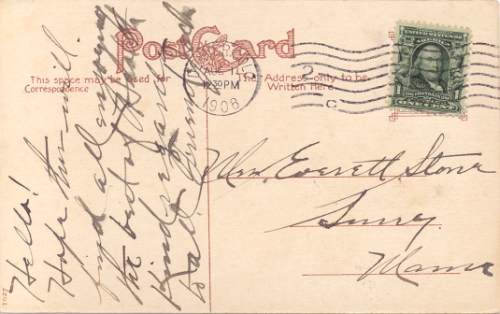 Post Card
This space may be used for
Correspondence
The Address only to be
Written Here
AUG 10
12-30 PM
1908
2
C
UNITED STATES OF AMERICA
1 1
Hello!
Hope this will
find all enjoying
the best of health
Kind regards
to all.
Mrs. Everett Stone
Surry
Maine